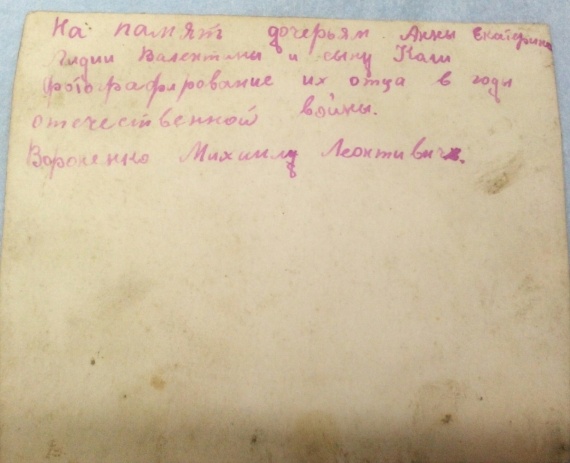 На памят дочерьям Анны Екатерина
Лидии Валентины и сыну Коли
фотографирование их отца в годы
отечественной войны.
Вороненко Михаилу Леонтивич.